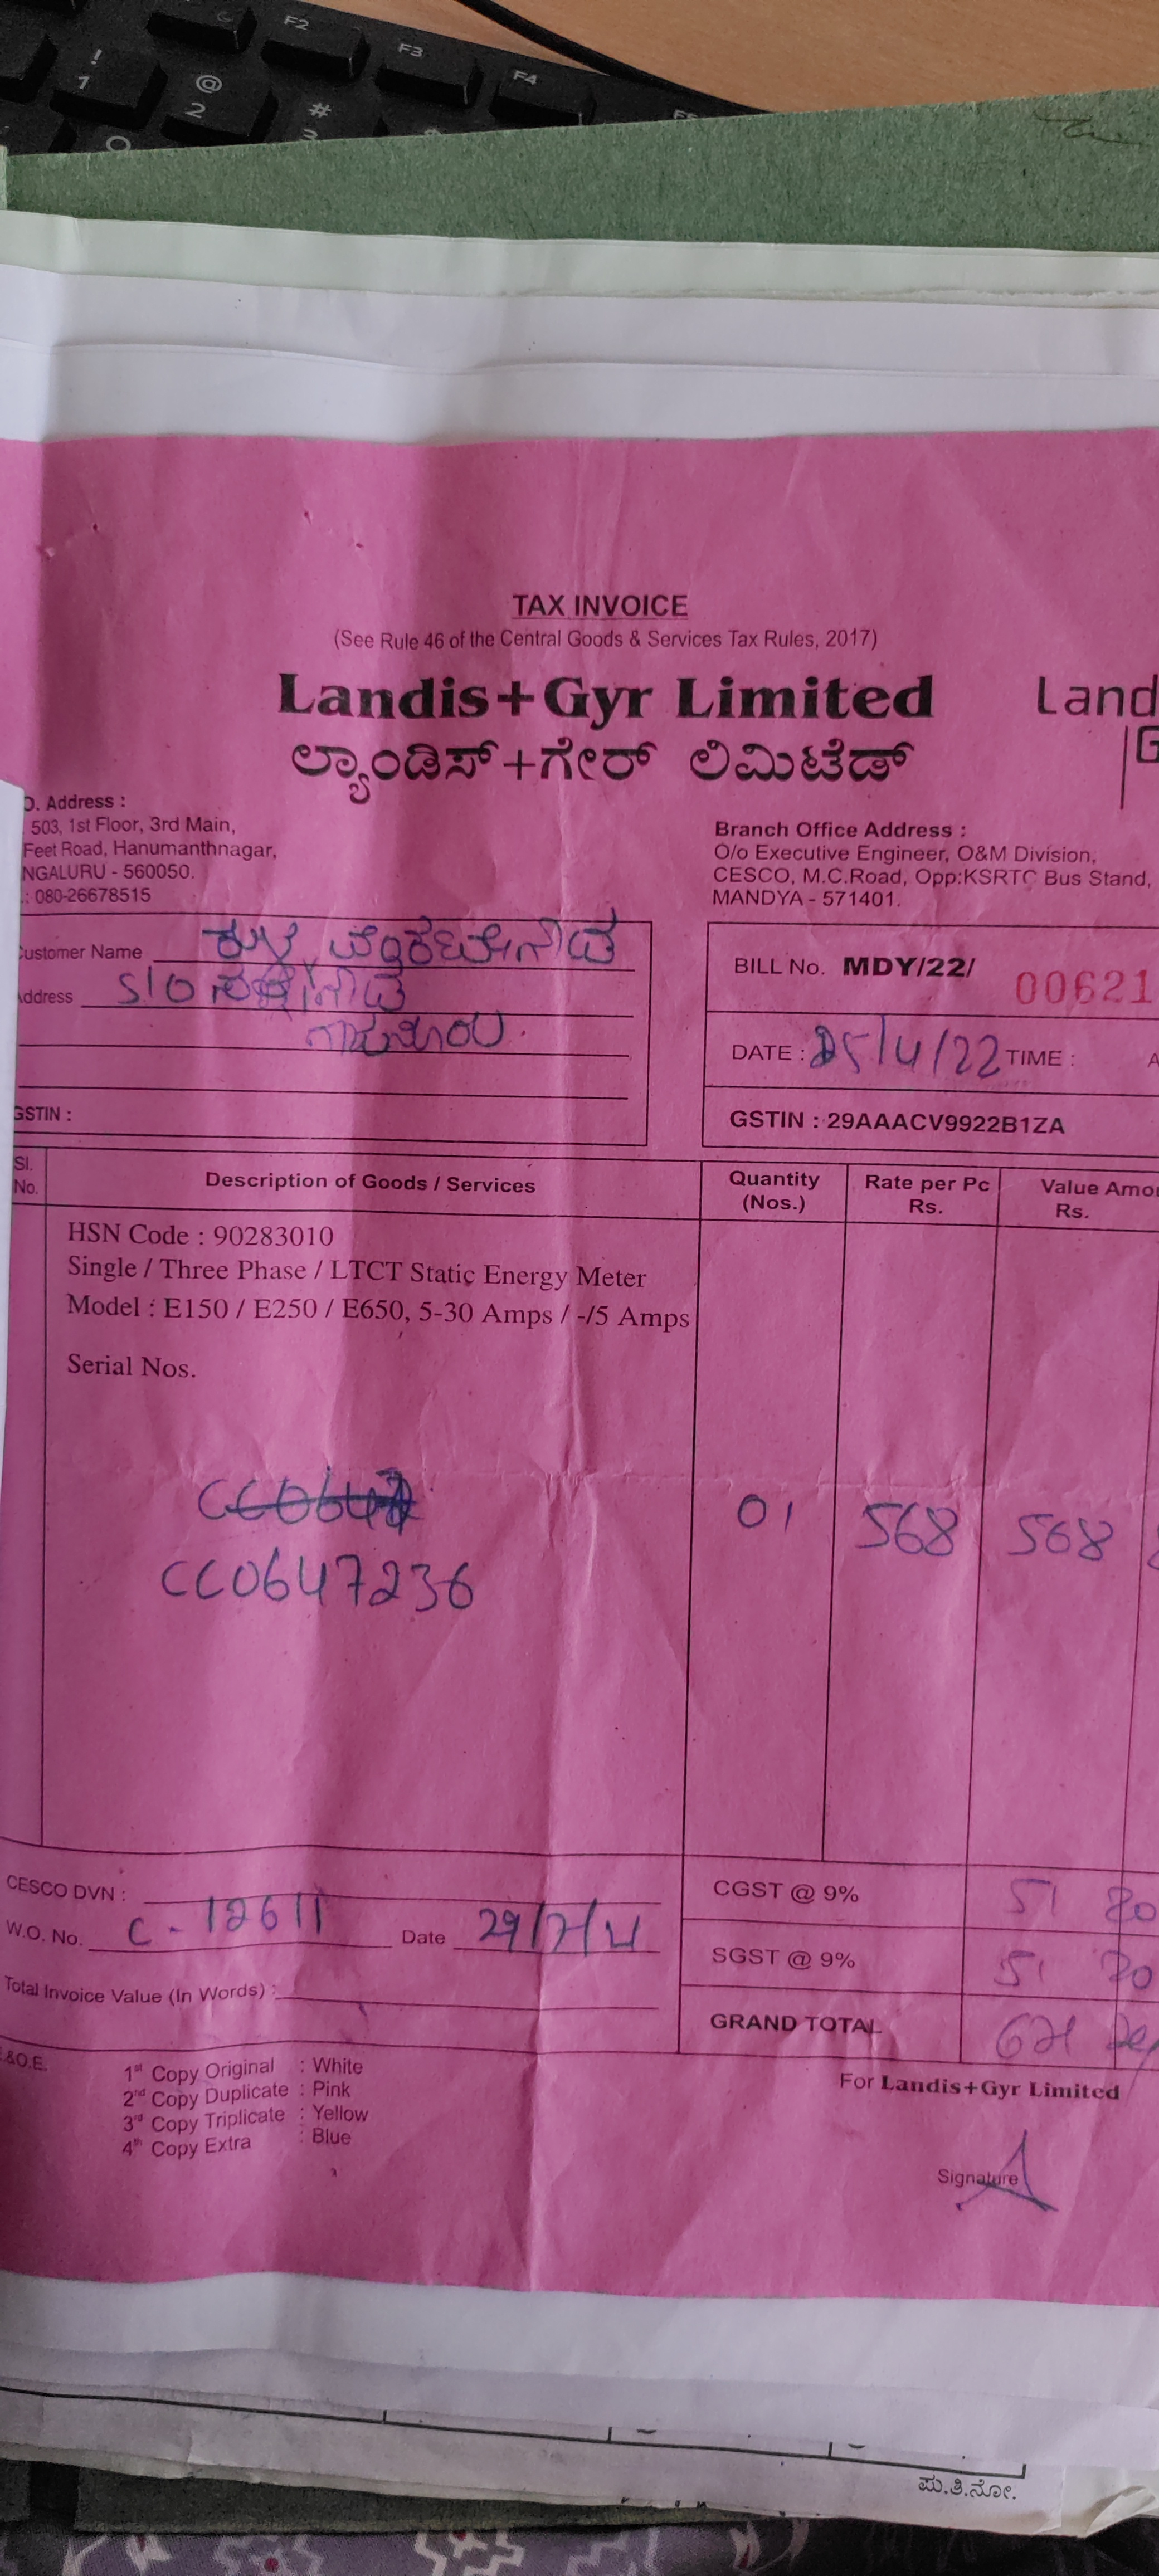 F2
F3
F4
! 1
@ 2
# 3
TAX INVOICE
(See Rule 46 of the Central Goods & Services Tax Rules, 2017)
Landis+Gyr Limited
Land
G
ಲ್ಯಾಂಡಿಸ್+ಗೇರ್ ಲಿಮಿಟೆಡ್
O. Address :
503, 1st Floor, 3rd Main,
Feet Road, Hanumanthnagar,
NGALURU - 560050.
: 080-26678515
Branch Office Address :
O/o Executive Engineer, O&M Division,
CESCO, M.C.Road, Opp:KSRTC Bus Stand,
MANDYA - 571401.
ustomer Name
ddress S/O
GSTIN :
BILL No. MDY/22/ 00621
DATE : 25/4/22 TIME : A
GSTIN : 29AAACV9922B1ZA
Sl. No. Description of Goods / Services Quantity (Nos.) Rate per Pc Rs. Value Amo Rs.
HSN Code : 90283010
Single / Three Phase / LTCT Static Energy Meter
Model : E150 / E250 / E650, 5-30 Amps / -/5 Amps
Serial Nos.
01 568 568
CC0647236
CESCO DVN :
W.O. No. C - 12611 Date
Total Invoice Value (In Words) :
CGST @ 9% 51
SGST @ 9% 51
GRAND TOTAL
&O.E.
1st Copy Original : White
2nd Copy Duplicate : Pink
3rd Copy Triplicate : Yellow
4th Copy Extra : Blue
For Landis+Gyr Limited
Signature
ಪು.ತಿ.ನೋ.